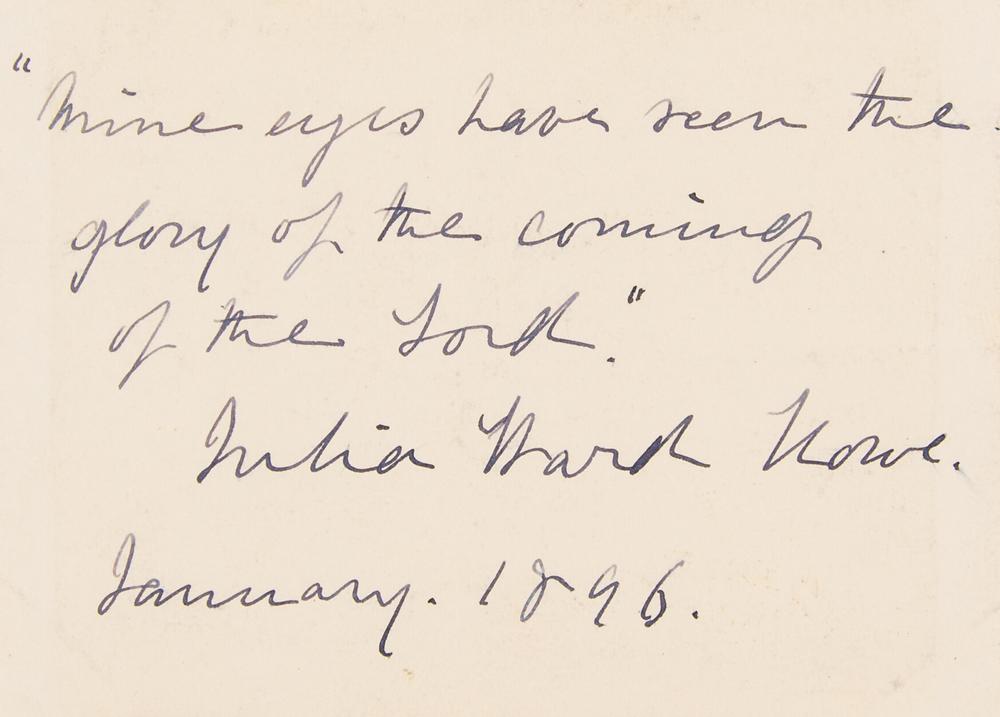 "Mine eyes have seen the
glory of the coming
of the Lord."
Julia Ward Howe.
January. 1896.